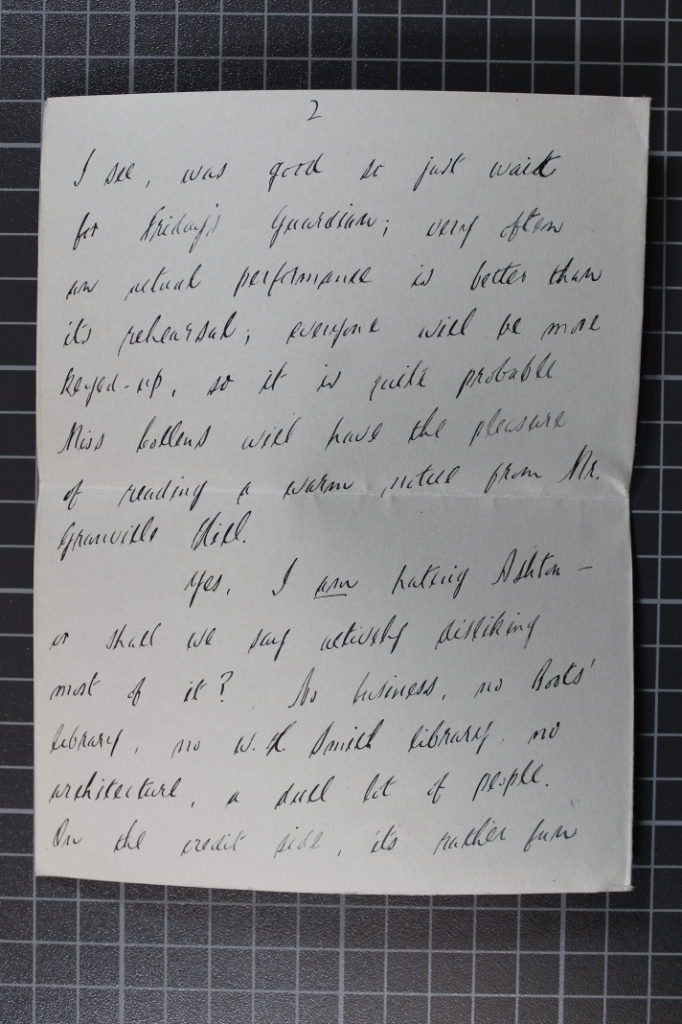 2
I see, was good so just wait
for Friday's Guardian; very often
an actual performance is better than
its rehearsal; everyone will be more
keyed-up, so it is quite probable
Miss Collens will have the pleasure
of reading a warm notice from Mr.
Granville Hill.
Yes, I am hating Ashton –
or shall we say actively disliking
most of it? No business, no Boots'
library, no W. H. Smith library, no
architecture, a dull lot of people.
On the credit side, its rather fun